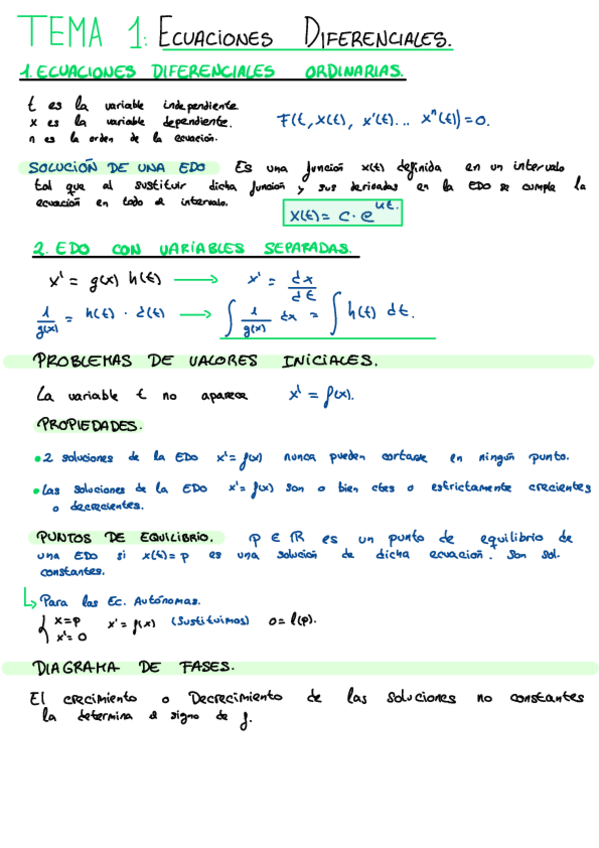 TEMA 1: ECUACIONES DIFERENCIALES.
1. ECUACIONES DIFERENCIALES ORDINARIAS.
t es la variable independiente
x es la variable dependiente.
F(t, x(t), x'(t)... xⁿ(t)) = 0.
n es la orden de la ecuación.
SOLUCIÓN DE UNA EDO Es una función x(t) definida en un intervalo
tal que al sustituir dicha función y sus derivadas en la EDO se cumple la
ecuación en todo el intervalo.
x(t) = C · e^ut.
2. EDO CON VARIABLES SEPARADAS.
x' = g(x) h(t) → x' = dx/dt
1/g(x) = h(t) · d(t) → ∫ 1/g(x) dx = ∫ h(t) dt.
PROBLEMAS DE VALORES INICIALES.
La variable t no aparece x' = f(x).
PROPIEDADES.
• 2 soluciones de la EDO x' = f(x) nunca pueden cortarse en ningún punto.
• Las soluciones de la EDO x' = f(x) son o bien ctes o estrictamente crecientes
o decrecientes.
PUNTOS DE EQUILIBRIO. p ∈ ℝ es un punto de equilibrio de
una EDO si x(t) = p es una solución de dicha ecuación. Son sol.
constantes.
↳ Para las Ec. Autónomas.
{ x = p
x' = 0
x' = f(x) (Sustituimos) 0 = f(p).
DIAGRAMA DE FASES.
El crecimiento o Decrecimiento de las soluciones no constantes
la determina el signo de f.